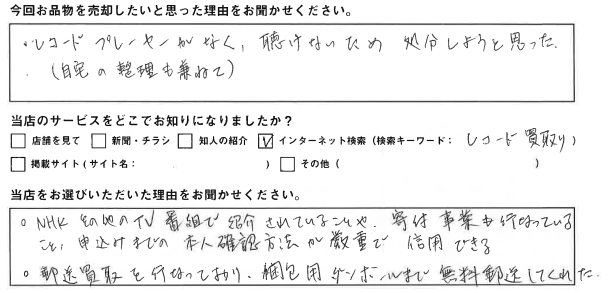 今回お品物を売却したいと思った理由をお聞かせください。
・レコードプレーヤーがなく、聴けないため 処分しようと思った。
(自宅の整理も兼ねて)
当店のサービスをどこでお知りになりましたか?
□店舗を見て □新聞・チラシ □知人の紹介 ☑インターネット検索(検索キーワード: レコード買取り)
□掲載サイト(サイト名: ) □その他( )
当店をお選びいただいた理由をお聞かせください。
○ NHK その他のTV番組で紹介されていることや、寄付事業も行なっている
こと、申込みまでの本人確認方法が厳重で信用できる
○ 郵送買取を行なっており、梱包用ダンボールまで無料郵送してくれた。